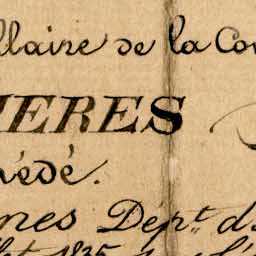 llaire de la Co
IERES
édé.
nes Dépt. d
let 1835